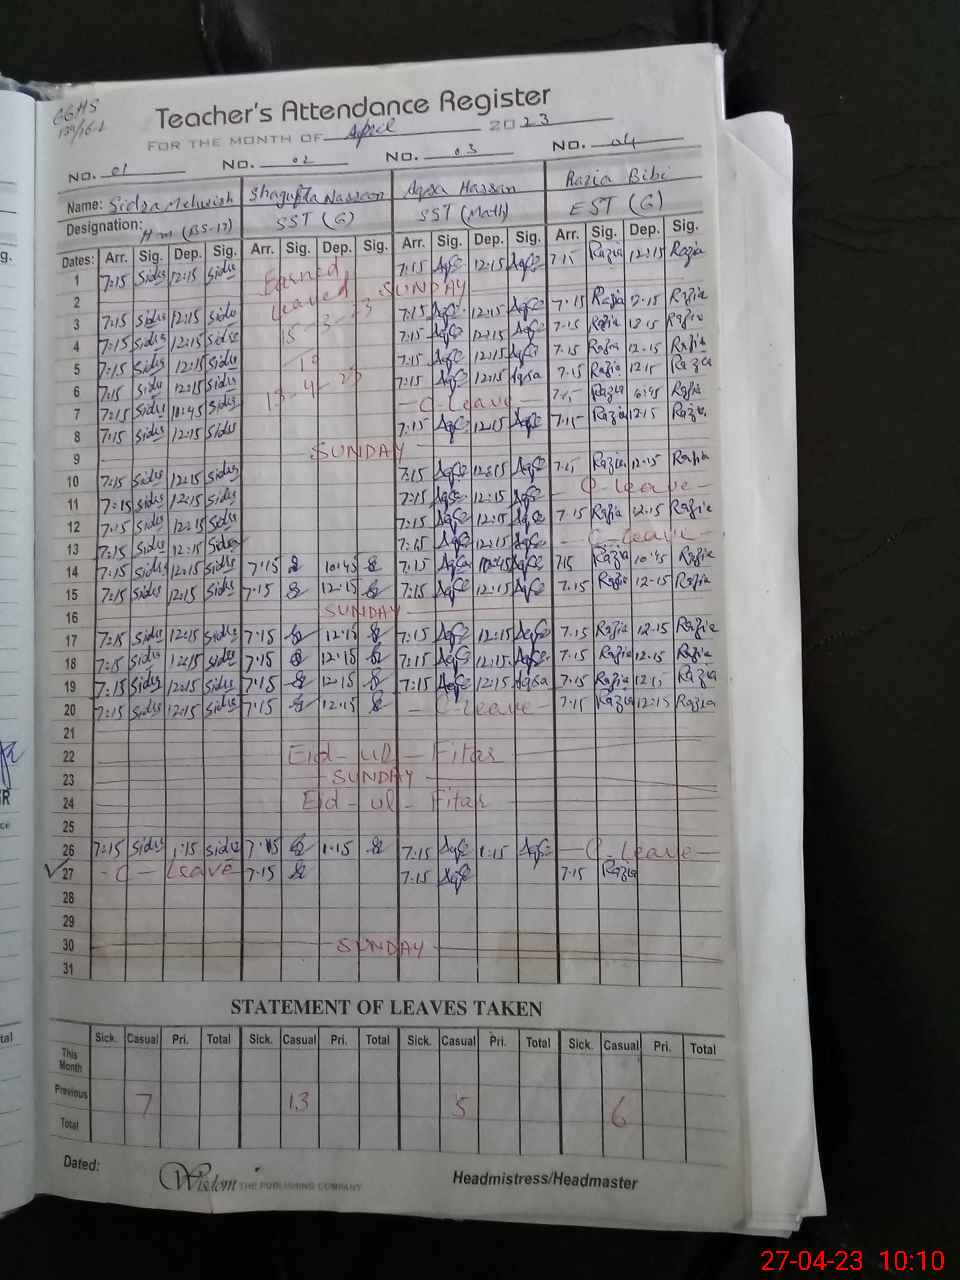 GGHS
Teacher's Attendance Register
FOR THE MONTH OF April 2023
NO. 01 NO. 02 NO. 03 NO. 04
Name: Sidra Mehwish Shagufta Hassan Aqsa Hassan Razia Bibi
Designation: Hm (BS-17) SST (G) SST (Math) EST (G)
Dates: Arr. Sig. Dep. Sig. Arr. Sig. Dep. Sig. Arr. Sig. Dep. Sig. Arr. Sig. Dep. Sig.
1 7:15 Sidra 12:15 Sidra Earned 7:15 Aqsa 12:15 Aqsa 7:15 Razia 12:15 Razia
2 leaved SUNDAY
3 7:15 Sidra 12:15 Sidra 15-3-23 7:15 Aqsa 12:15 Aqsa 7:15 Razia 12:15 Razia
4 7:15 Sidra 12:15 Sidra 7:15 Aqsa 12:15 Aqsa 7:15 Razia 12:15 Razia
5 7:15 Sidra 12:15 Sidra 7:15 Aqsa 12:15 Aqsa 7:15 Razia 12:15 Razia
6 7:15 Sidra 12:15 Sidra 13-4-23 7:15 Aqsa 12:15 Aqsa 7:15 Razia 12:15 Razia
7 7:15 Sidra 10:45 Sidra - C-Leave - 7:15 Razia 10:45 Razia
8 7:15 Sidra 12:15 Sidra 7:15 Aqsa 12:15 Aqsa 7:15 Razia 12:15 Razia
9 SUNDAY
10 7:15 Sidra 12:15 Sidra 7:15 Aqsa 12:15 Aqsa 7:15 Razia 12:15 Razia
11 7:15 Sidra 12:15 Sidra 7:15 Aqsa 12:15 Aqsa - C-leave -
12 7:15 Sidra 12:15 Sidra 7:15 Aqsa 12:15 Aqsa 7:15 Razia 12:15 Razia
13 7:15 Sidra 12:15 Sidra 7:15 Aqsa 12:15 Aqsa - C-leave -
14 7:15 Sidra 12:15 Sidra 7:15 10:45 7:15 Aqsa 10:45 Aqsa 7:15 Razia 10:45 Razia
15 7:15 Sidra 12:15 Sidra 7:15 12:15 7:15 Aqsa 12:15 Aqsa 7:15 Razia 12:15 Razia
16 SUNDAY
17 7:15 Sidra 12:15 Sidra 7:15 12:15 7:15 Aqsa 12:15 Aqsa 7:15 Razia 12:15 Razia
18 7:15 Sidra 12:15 Sidra 7:15 12:15 7:15 Aqsa 12:15 Aqsa 7:15 Razia 12:15 Razia
19 7:15 Sidra 12:15 Sidra 7:15 12:15 7:15 Aqsa 12:15 Aqsa 7:15 Razia 12:15 Razia
20 7:15 Sidra 12:15 Sidra 7:15 12:15 - C-leave - 7:15 Razia 12:15 Razia
21
22 Eid-ul-Fitar
23 SUNDAY
24 Eid-ul-Fitar
25
26 7:15 Sidra 1:15 Sidra 7:15 1:15 7:15 Aqsa 1:15 Aqsa - C-Leave -
27 - C - Leave 7:15 7:15 Aqsa 7:15 Razia
28
29
30 SUNDAY
31
STATEMENT OF LEAVES TAKEN
Sick. Casual Pri. Total Sick. Casual Pri. Total Sick. Casual Pri. Total Sick. Casual Pri. Total
This Month
Previous 7 13 5 6
Total
Dated:
Wisdom THE PUBLISHING COMPANY
Headmistress/Headmaster
27-04-23 10:10